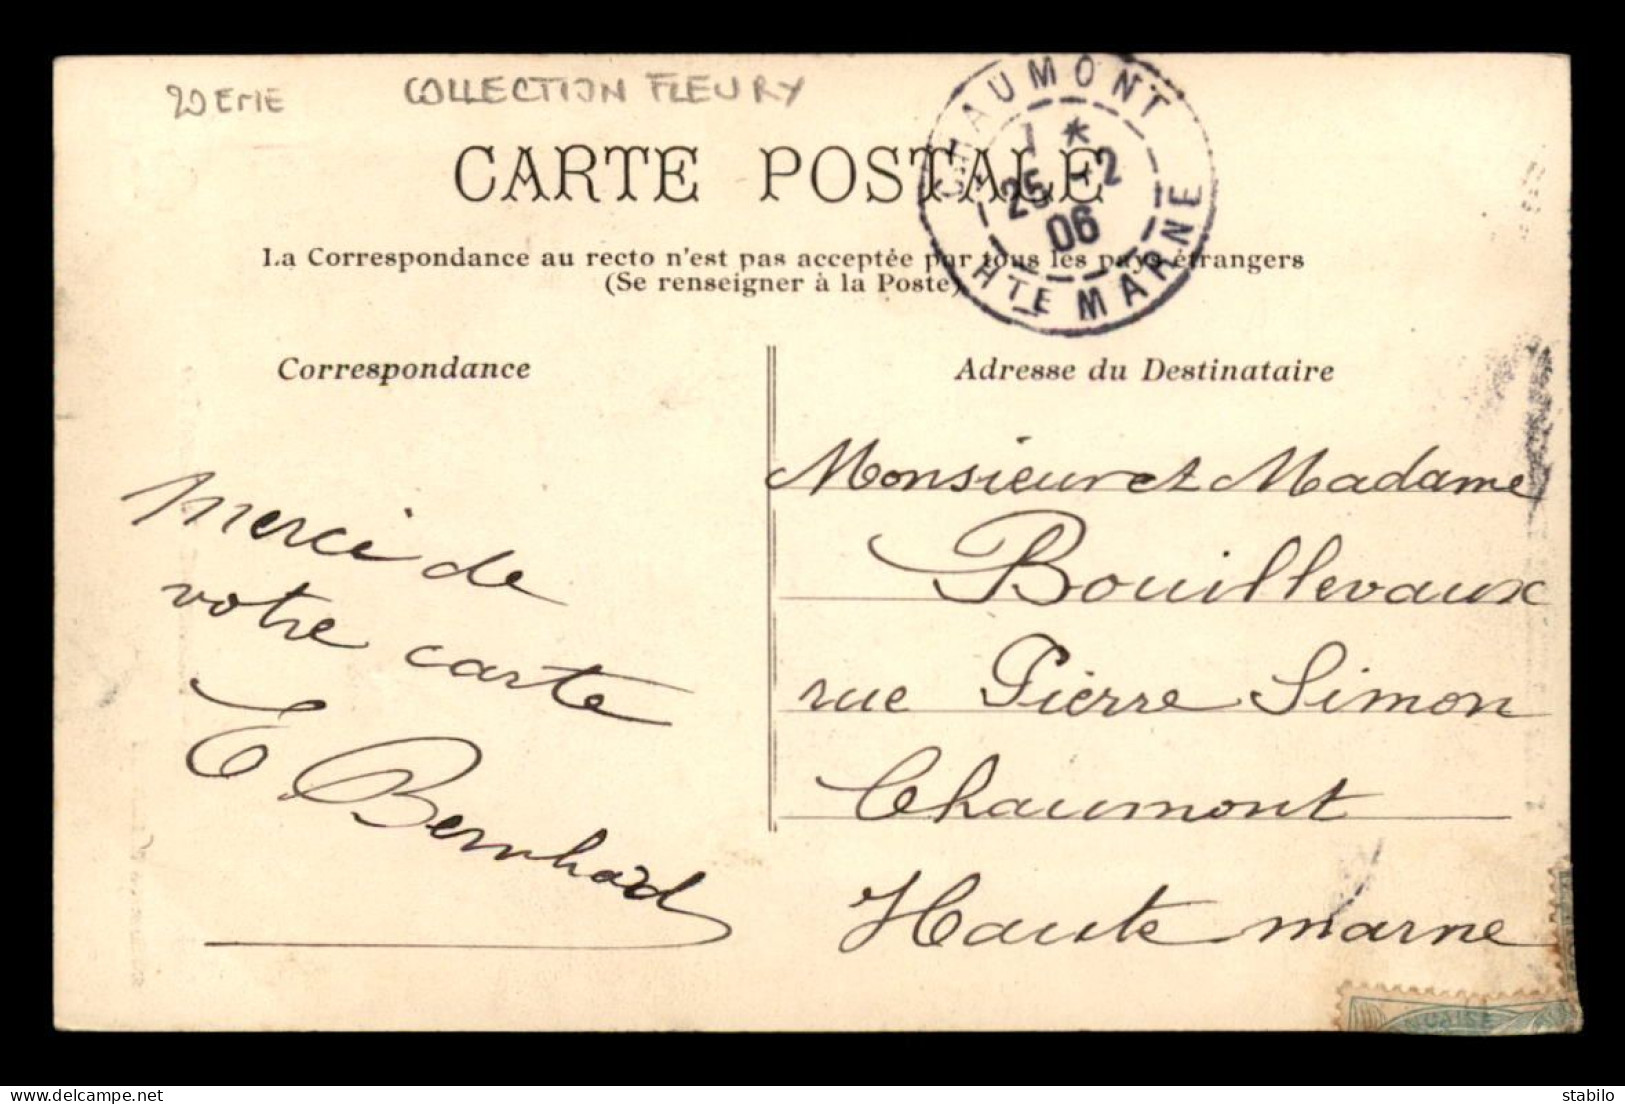 20EME COLLECTION FLEURY
CARTE POSTALE
CHAUMONT
1 *
25 - 2
06
HTE MARNE
La Correspondance au recto n'est pas acceptée par tous les pays étrangers
(Se renseigner à la Poste)
Correspondance
merci de
votre carte
E Bernhard
Adresse du Destinataire
Monsieur et Madame
Bouillevaux
rue Pierre Simon
Chaumont
Haute marne
www.delcampe.net
stabilo